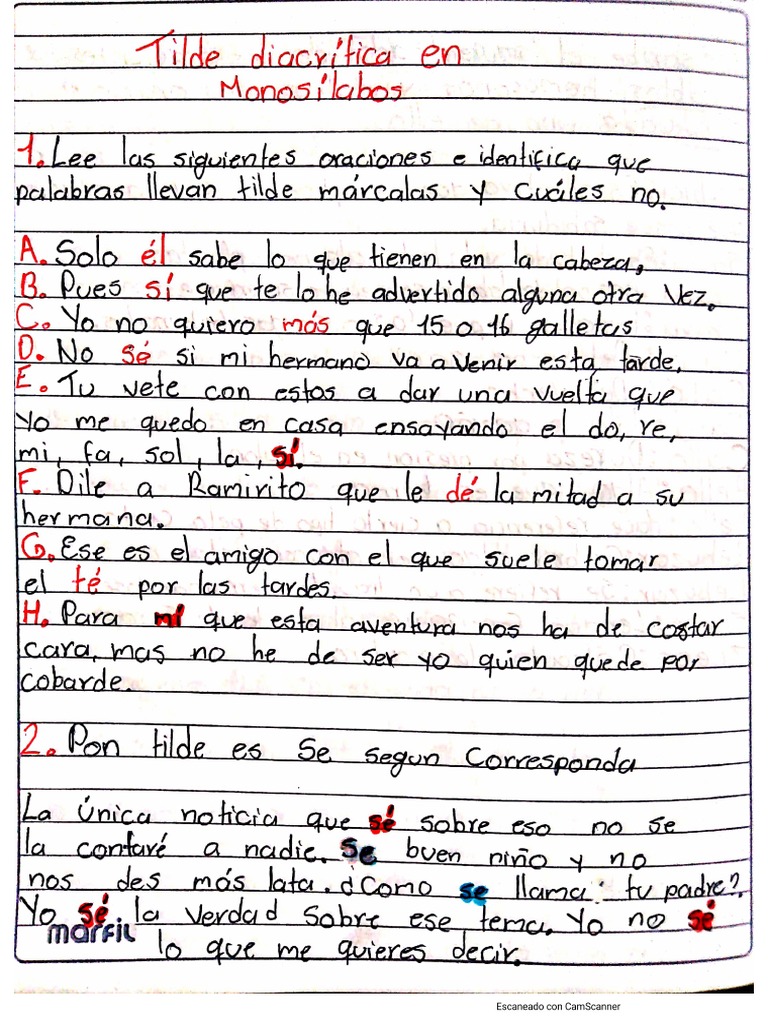 Tilde diacrítica en
Monosílabos
1. Lee las siguientes oraciones e identifica que
palabras llevan tilde márcalas y cuáles no.
A. Solo él sabe lo que tienen en la cabeza,
B. Pues sí que te lo he advertido alguna otra vez.
C. Yo no quiero más que 15 o 16 galletas
D. No sé si mi hermano va a venir esta tarde.
E. Tu vete con estos a dar una vuelta que
Yo me quedo en casa ensayando el do, re,
mi, fa, sol, la, sí.
F. Dile a Ramirito que le dé la mitad a su
hermana.
G. Ese es el amigo con el que suele tomar
el té por las tardes.
H. Para mí que esta aventura nos ha de costar
cara, mas no he de ser yo quien quede por
cobarde.
2. Pon tilde es Se segun Corresponda
La única noticia que sé sobre eso no se
la contaré a nadie. Se buen niño y no
nos des más lata. ¿Como se llama tu padre?
Yo sé la verdad sobre ese tema. Yo no sé
marfil
lo que me quieres decir.
Escaneado con CamScanner